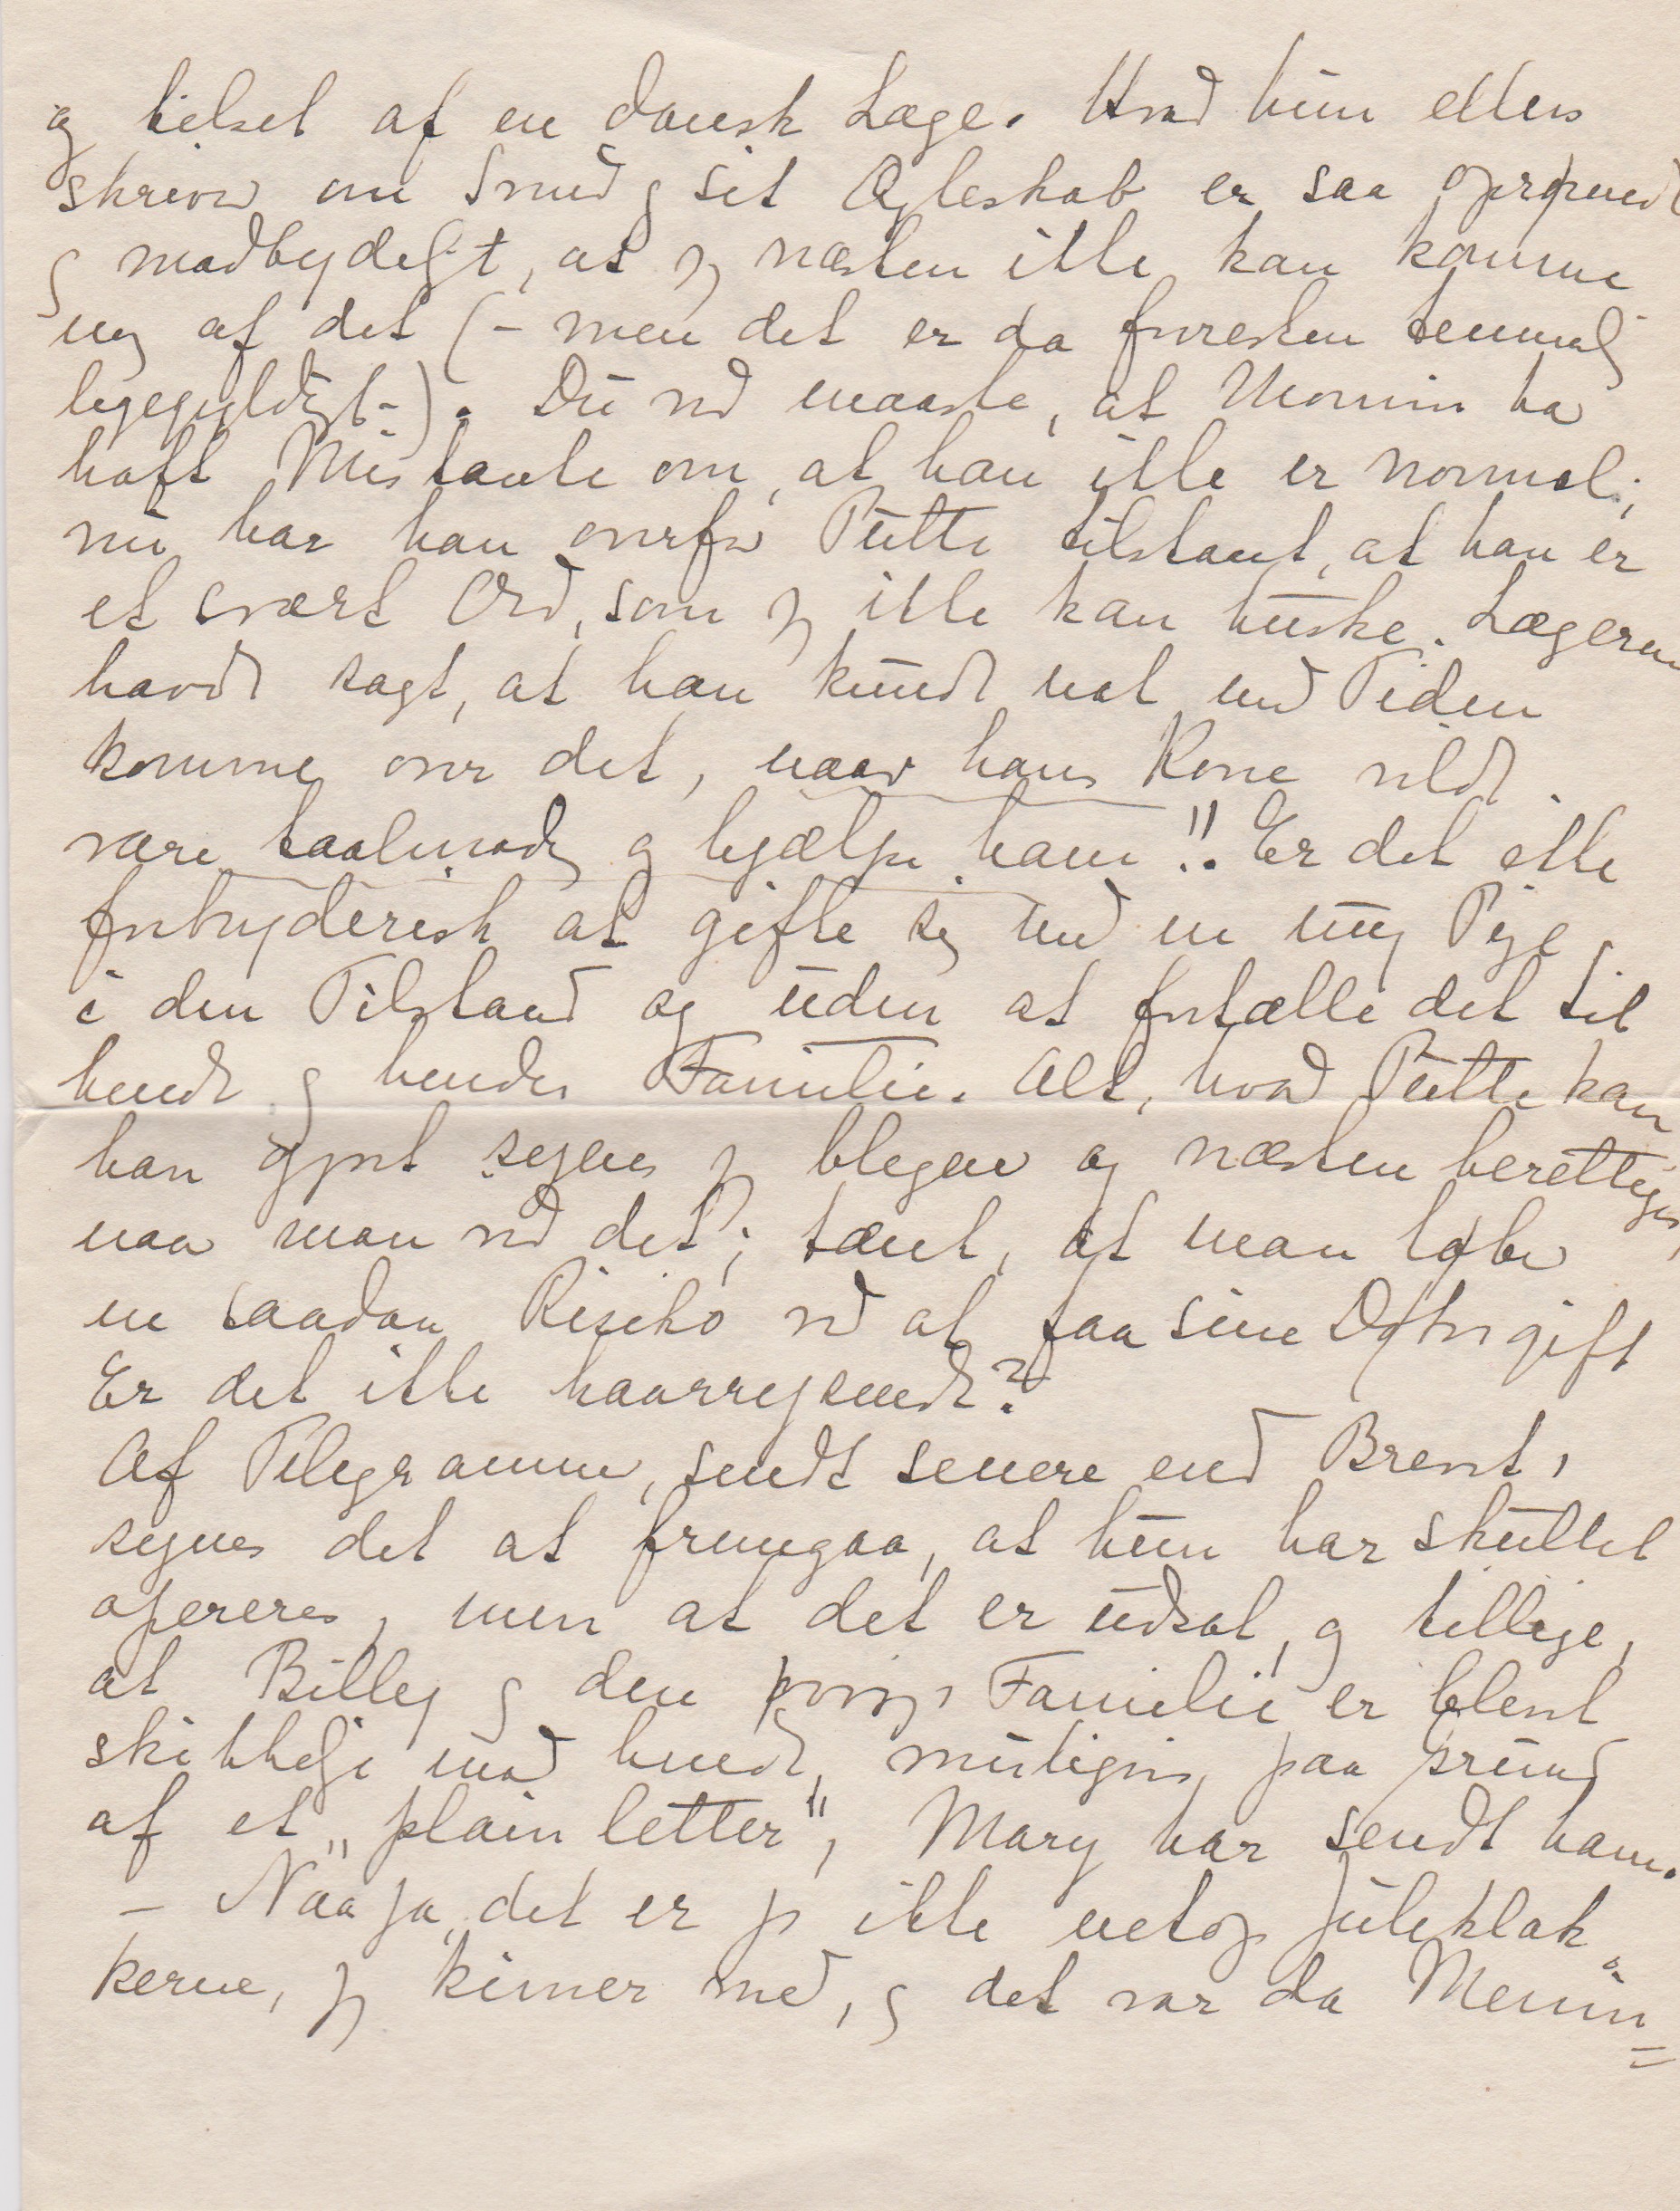 og tilset af en dansk Læge. Hvad hun ellers
skriver om Smud og sit Ægteskab er saa oprørende
og modbydeligt, at jeg næsten ikke kan komme
mig af det (- men det er da forresten temmelig
ligegyldigt -). Du ved maaske, at Mornin har
haft Mistanke om, at han ikke er normal;
nu har han overfor Putte tilstaaet, at han er
et svært Ord, som jeg ikke kan huske. Lægerne
havde sagt, at han kunde nok med Tiden
komme over det, naar hans Kone vilde
være taalmodig og hjælpe ham!! Er det ikke
forbryderisk at gifte sig med en ung Pige
i den Tilstand og uden at fortælle det til
hende og hendes Familie. Alt, hvad Putte kan
han gjort synes jeg blegner og næsten berettiges,
naar man ved det; tænk, at man løber
en saadan Risiko ved at faa sine Døtre gift
Er det ikke haarrejsende?
Af Telegrammer, sendt senere end Brevet,
synes det at fremgaa, at hun har skullet
opereres, men at det er udsat, og tillige,
at Billy og den øvrige Familie er blevet
skikkelige mod hende, muligvis paa Grund
af et „plain letter", Mary har sendt ham.
- Naa ja, det er jo ikke netop Juleklok-
kerne, jeg kimer med, og det var da Menin=